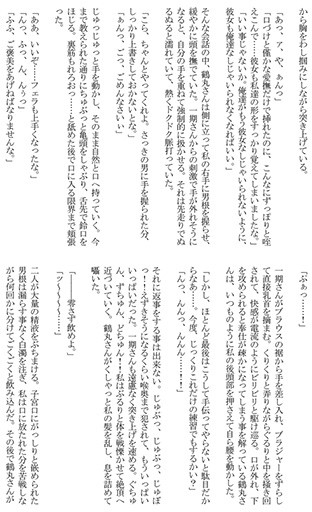 から胸をわし掴みにしながら突き上げている。
「あっ、ア、や、あんっ」
「口づけと僅かな愛撫だけで挿れたのに、こんなにずっぽりと咥
えこんで……彼女も私達の形をすっかり覚えてしまいましたな」
「いい事じゃないか、俺達がもう彼女なしじゃいられないように、
彼女も俺達なしじゃいられなくなればいい」
そんな会話の中、鶴丸さんは側に立って私の右手に男根を握らせ、
緩やかに頭を撫でていた。一期さんからの刺激で手が外れそうに
なると、自分の手を重ねて強制的に扱かせる。それは先走りでぬ
るぬると濡れていて、熱くドクドクと脈打っていた。
「こら、ちゃんとやってくれよ。さっきの男に手を握られた分、
しっかり上書きしておかないとな」
「ぁんっ、ごっ、ごめんなさいぃ」
じゅっじゅっと手を動かし、そのまま自然と口へ持っていく。今
まで教えられた通りにちゅぷっと亀頭をしゃぶり、舌先で鈴口を
ほじる。裏筋もれろぉっ……と舐めた後で口に入る限界まで頬張
った。
「ああ、いいぞ……フェラも上手くなったな」
「んっ、ふっ、ん、んぅっ」
「ふふ、ご褒美をあげねばなりませんな」
「ぷぁっ……!」
一期さんがブラウスの裾から手を差し入れ、ブラジャーをずらし
て直接乳首を摘まむ。くりくりと弄りながらぐるりと中を掻き回
されて、快感が電流のようにビリビリと駆け巡る。口が外れ、下
を攻められると奉仕が疎かになってしまう事を解っている鶴丸さ
んは、いつものように私の後頭部を押さえて自ら腰を動かした。
「しかし、ほとんど最後はこうして手伝ってやらないと駄目だか
らなぁ……。今度、じっくりこれだけの練習でもするかい?」
「んんっ、んんっ、んんん……!」
それに返事をする事は出来ない。じゅぷっ、じゅぷっ、じゅぽ
っ!!えずきそうになるくらい喉奥まで犯されて、もういっぱい
いっぱいだった。一期さんも遠慮なく突き上げを速める。ぐちゅ
ん、ずちゅん、どちゅん!!私はぶるりと体を戦慄かせて絶頂へ
近づいていく。鶴丸さんがくしゃっと私の髪を乱し、息を詰めて
囁いた。
「――零さず飲めよ」
「ッッ~~~~……!」
二人が大量の精液をぶちまける。子宮口にがっしりと嵌められた
男根は漏らす事なく白濁を注ぎ、私は口に放たれた分を苦戦しな
がら何回かに分けてごくごくと飲み込んだ。その後で鶴丸さんが